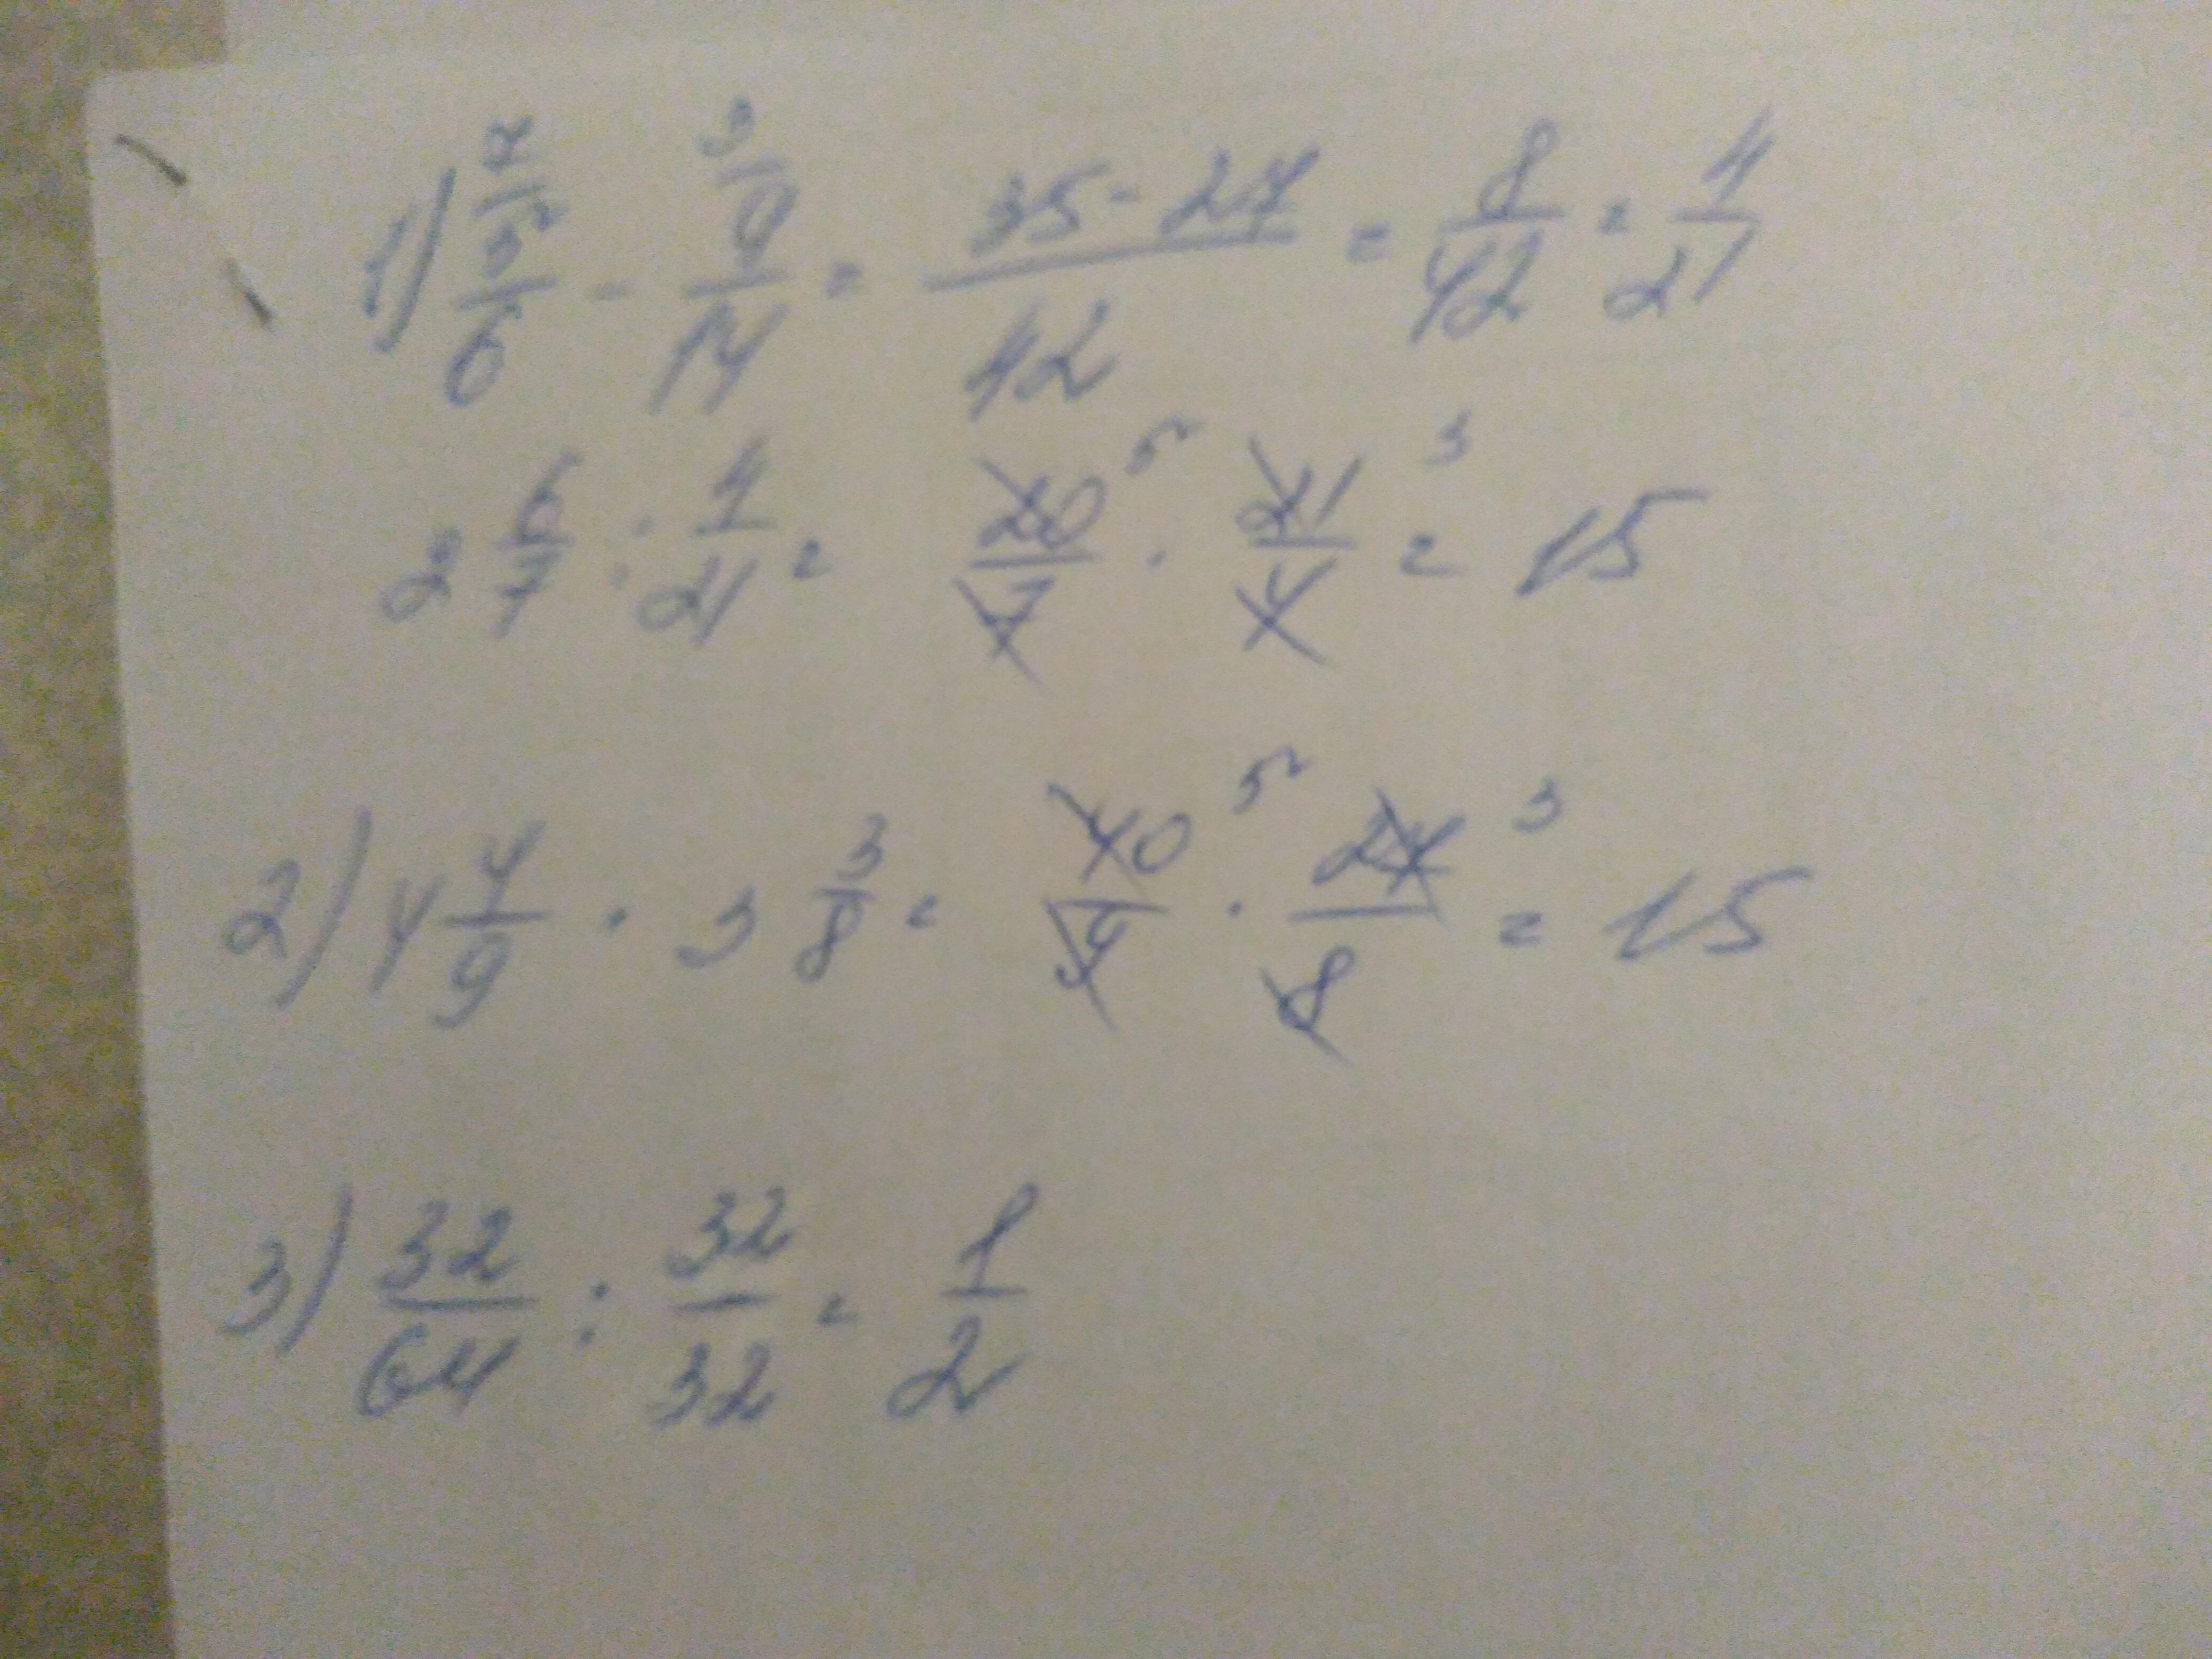 1) 7/5/6 - 3/9/14 = 35-27/42 = 8/42 = 4/21
2 6/7 : 4/21 = 20/7 5 · 21/4 3 = 15
2) 4 4/9 · 3 3/8 = 40/9 5 · 27/8 3 = 15
3) 32/64 : 32/32 = 1/2